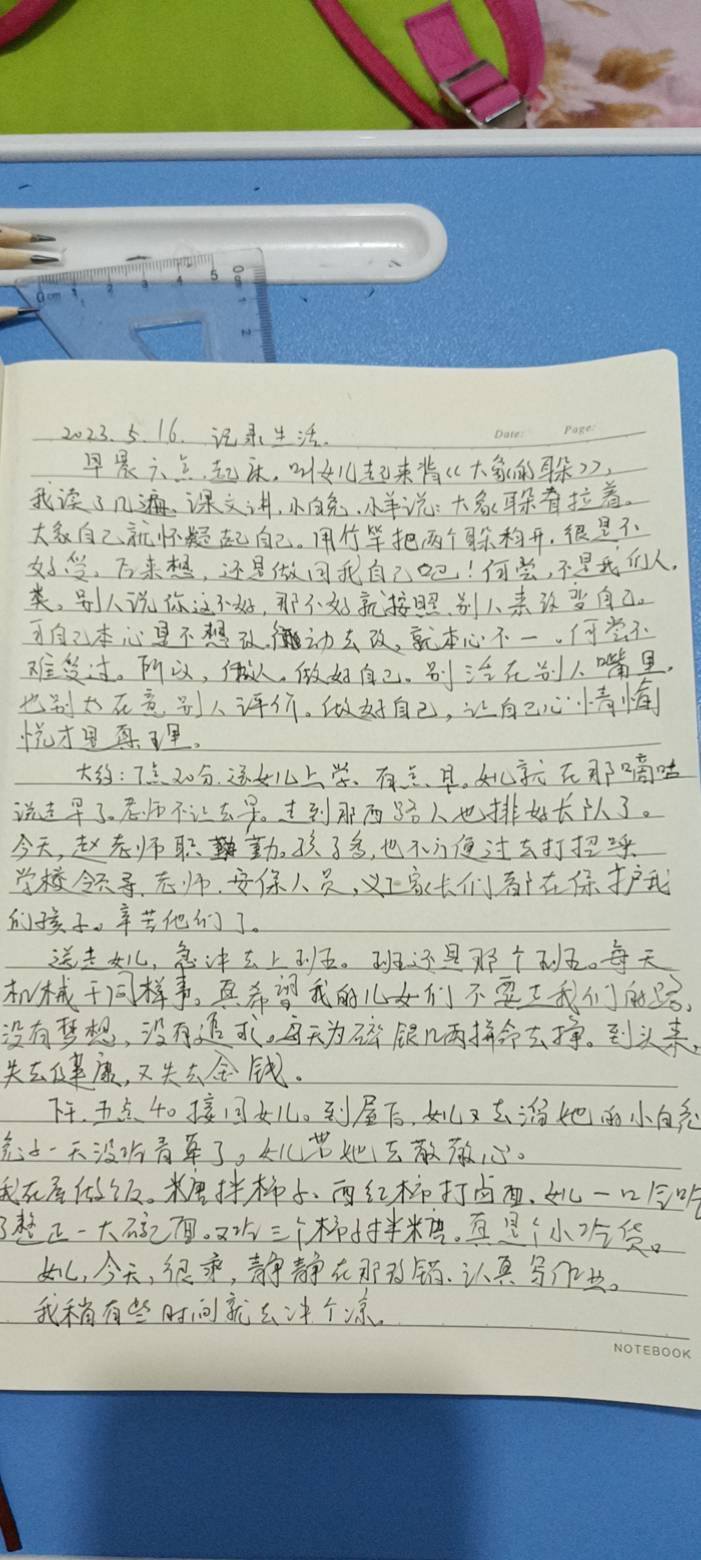 0cm 1 2 3 4 5
2023.5.16. 记录生活.
Date: Page:
早晨六点.起床.叫女儿起来背《大象的耳朵》,
我读了几遍.课文讲,小白兔.小羊说:大象耳朵耷拉着。
大象自己就怀疑起自己。用竹竿把两个耳朵撑开,很是不
好受。后来想,还是做回我自己吧!何尝,不是我们人.
类。别人说你这不好,那不好就按照别人来改变自己。
可自己本心是不想改.动去改。就本心不一.何尝不
难受过。所以,做人.做好自己。别活在别人嘴里.
也别太在意别人评价。做好自己,让自己心情愉
悦才是真理。
大约:7点20分.送女儿上学.有点.早。女儿就在那嘀咕
说走早了。老师不让去早。走到那西路人也排好长队了。
今天,赵老师职勤。孩子多,也不方便过去打招呼
学校领导.老师.安保人员,义工家长们都在保护我
们孩子。辛苦他们了。
送走女儿,急冲去上班。班还是那个班。每天
机械干同样事。真希望我的儿女们不要走我们的路,
没有梦想,没有追求。每天为碎银几两拼命去挣。到头来,
失去健康,又失去金钱。
下午.五点40接回女儿。到屋后,女儿又去溜她的小白兔
兔子一天没吃青草了。女儿带她去散散心。
我在屋做饭。米唐拌柿子.西红柿打卤面.女儿一口气吃
了整正一大碗面。又吃三个柿子拌米唐。真是个小吃货。
女儿,今天,很乖,静静在那认真写作业。
我稍有些时间就去冲个凉。
NOTEBOOK